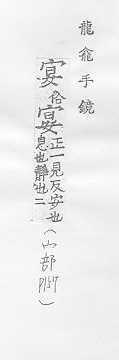 龍龕手鏡
宴俗宴正一見反安也
息也靜也二
(宀部
P157)